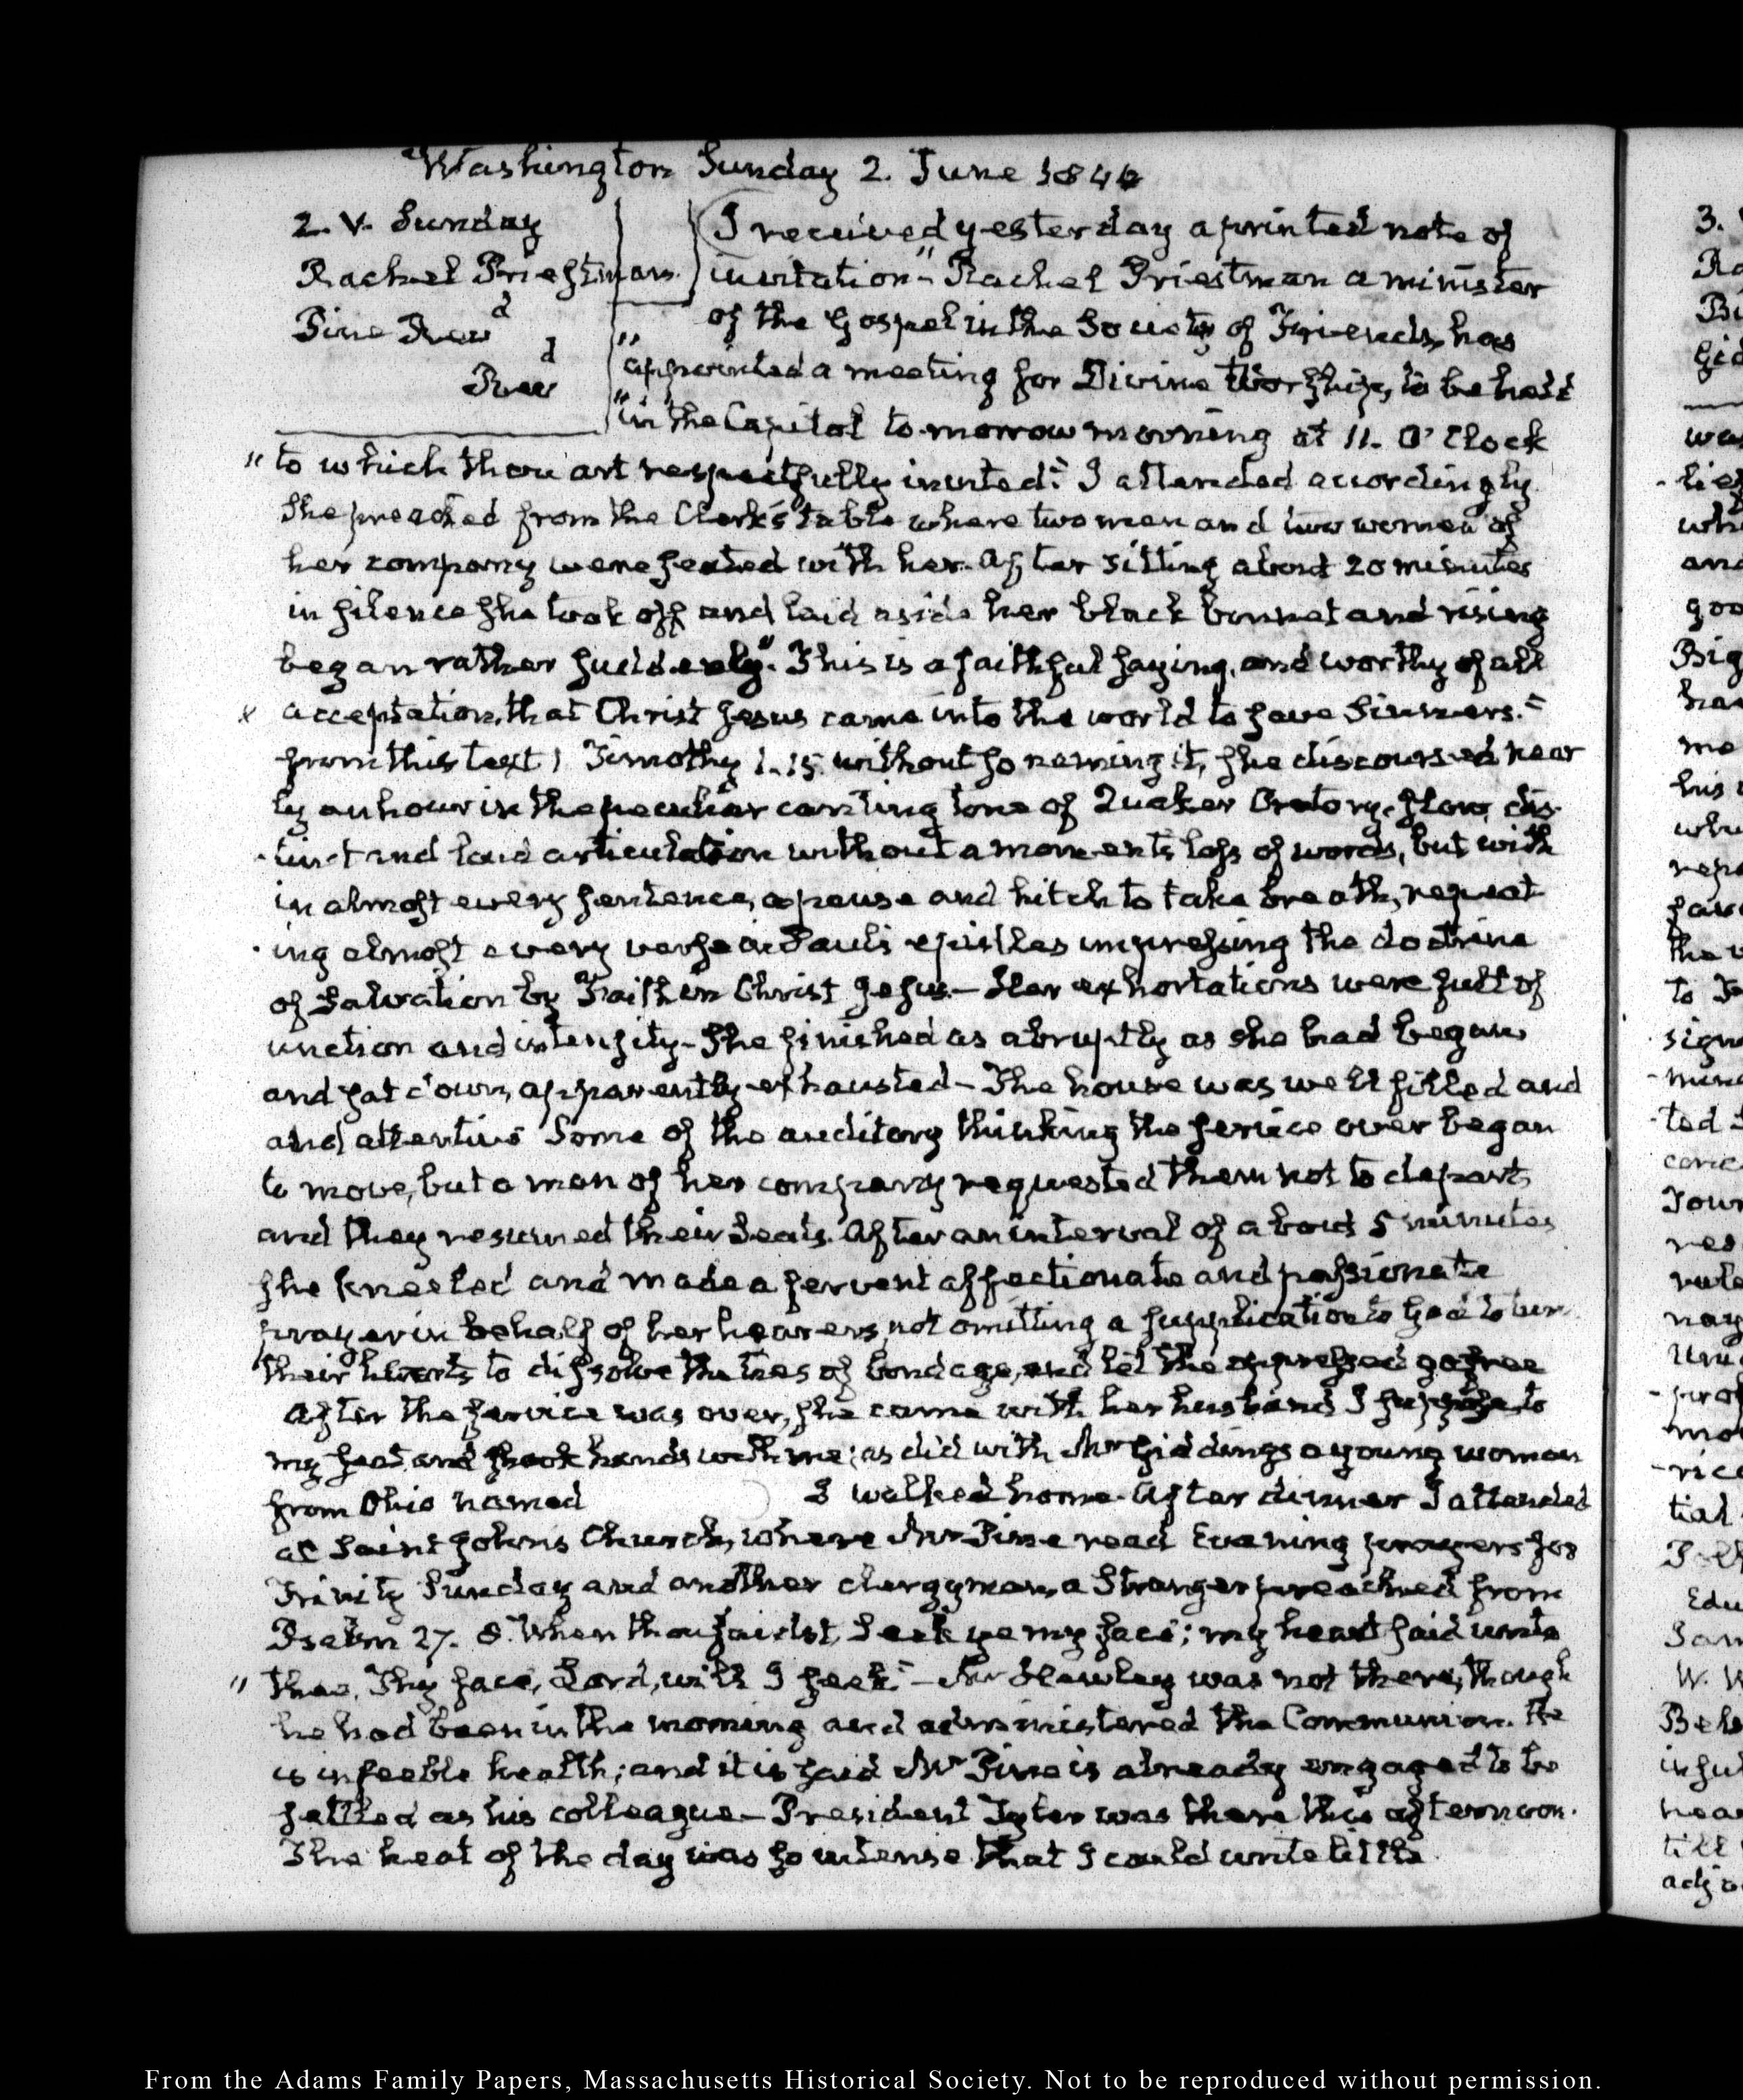 Washington Sunday 2. June 1844
2. V. Sunday
Rachel Priestman.
Pine Revd
Revd
I received yesterday a printed note of
invitation "Rachel Priestman a minister
" of the Gospel in the Society of Friends, has
" appointed a meeting for Divine Worship, to be held
" in the Capitol to-morrow morning at 11. O'Clock
" to which thou art respectfully invited." I attended accordingly.
She preached from the Clerk's table where two men and two women of
her company were seated with her. After sitting about 20 minutes
in silence she took off and laid aside her black bonnet and rising
began rather suddenly. "This is a faithful saying, and worthy of all
acceptation, that Christ Jesus came into the world to save Sinners."
from this text 1 Timothy 1.15. without so naming it, she discoursed near
ly an hour in the peculiar canting tone of Quaker Oratory, slow, dis-
-tinct and loud articulation without a moment's loss of words, but with
in almost every sentence, a pause and hitch to take breath, repeat
-ing almost every verse in Paul's epistles impressing the doctrine
of Salvation by Faith in Christ Jesus.— Her exhortations were full of
unction and intensity— She finished as abruptly as she had began
and sat down, apparently exhausted— The house was well filled and
and attentive Some of the auditory thinking the service over began
to move, but a man of her company requested them not to depart,
and they resumed their Seats. After an interval of about 5 minutes
she kneeled and made a fervent affectionate and passionate
prayer in behalf of her hearers, not omitting a supplication to God to turn
their hearts to dissolve the ties of bondage, and let the oppressed go free
After the service was over, she came with her husband I suppose to
my seat and shook hands with me; as did with Mr Giddings a young woman
from Ohio named I walked home. After dinner I attended
at Saint John's Church, where Mr Pine read Evening prayers for
Trinity Sunday and another clergyman, a Stranger preached from
Psalm 27. 8. "When thou saidst, Seek ye my face; my heart said unto
" thee, Thy face, Lord, will I seek."— Mr Hawley was not there, though
he had been in the morning and administered the Communion. He
is in feeble health; and it is said Mr Pine is already engaged to be
settled as his colleague— President Tyler was there this afternoon.
The heat of the day was so intense that I could write little
From the Adams Family Papers, Massachusetts Historical Society. Not to be reproduced without permission.